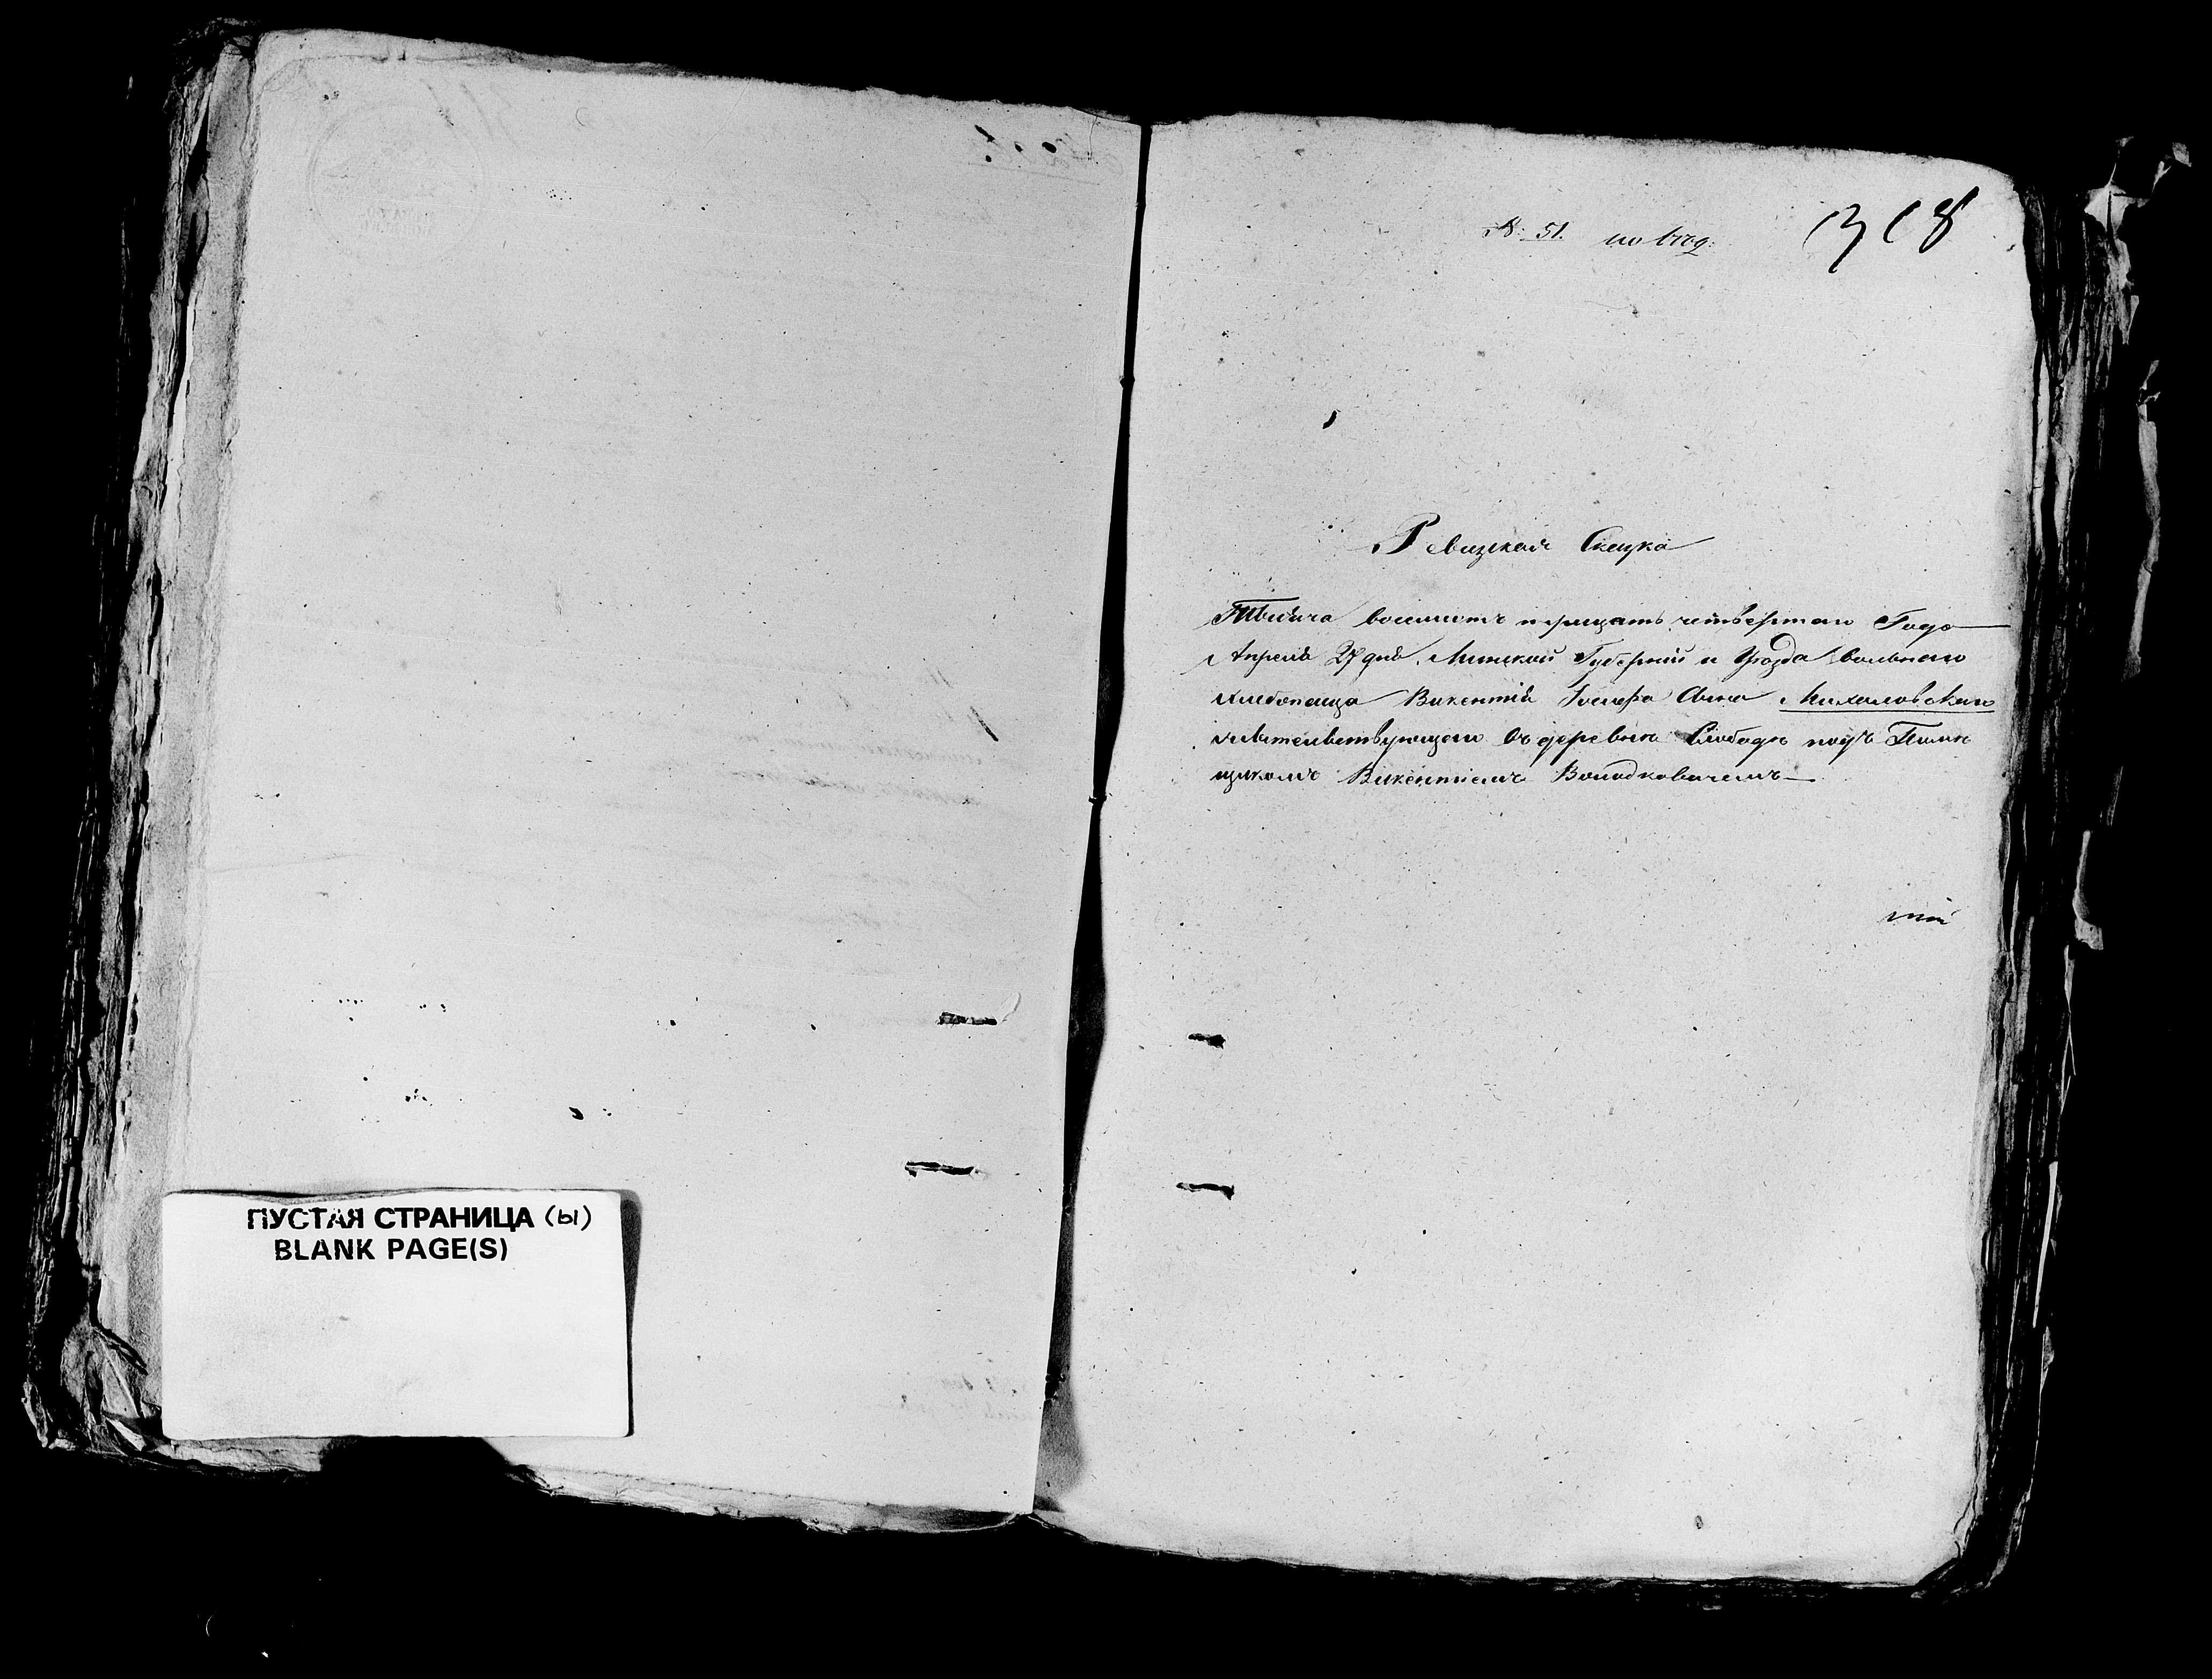 №: 51.
Ревизская Сказка
Тысяча восемсотъ трицать четвертаго Года
Апреля 27 дня. Минской Губерніи и Уезда вольнаго
хлебопашца Викентія Іосифа Сына Михаловского
жительствующаго въ деревни Слободе подъ Поме
щикомъ Викентіемъ Володковичемъ
ПУСТАЯ СТРАНИЦА (Ы)
BLANK PAGE(S)